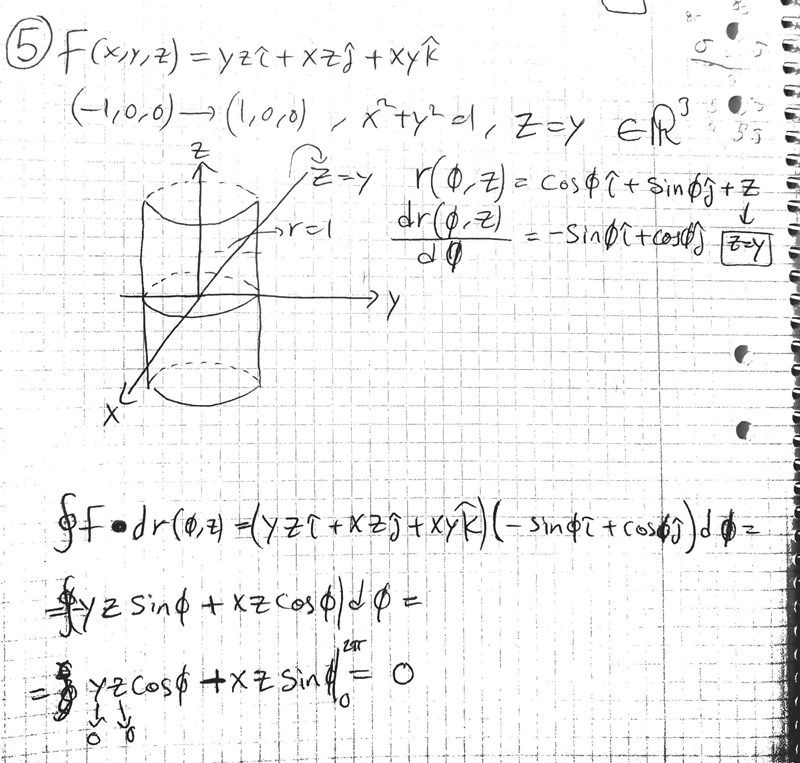 ⑤ F(x,y,z) = yzî + xzĵ + xyk̂
(-1,0,0) → (1,0,0) , x²+y²=1, z=y ∈ℝ³
z
z=y
r(φ,z) = cosφî + sinφĵ + z
r=1
dr(φ,z)/dφ = -sinφî + cosφĵ
z=y
y
x
∮F•dr(φ,z) = (yzî + xzĵ + xyk̂)(-sinφî + cosφĵ)dφ =
=∮yz sinφ + xz cosφ)dφ =
= yz cosφ + xz sinφ|₀²π = 0
0 0